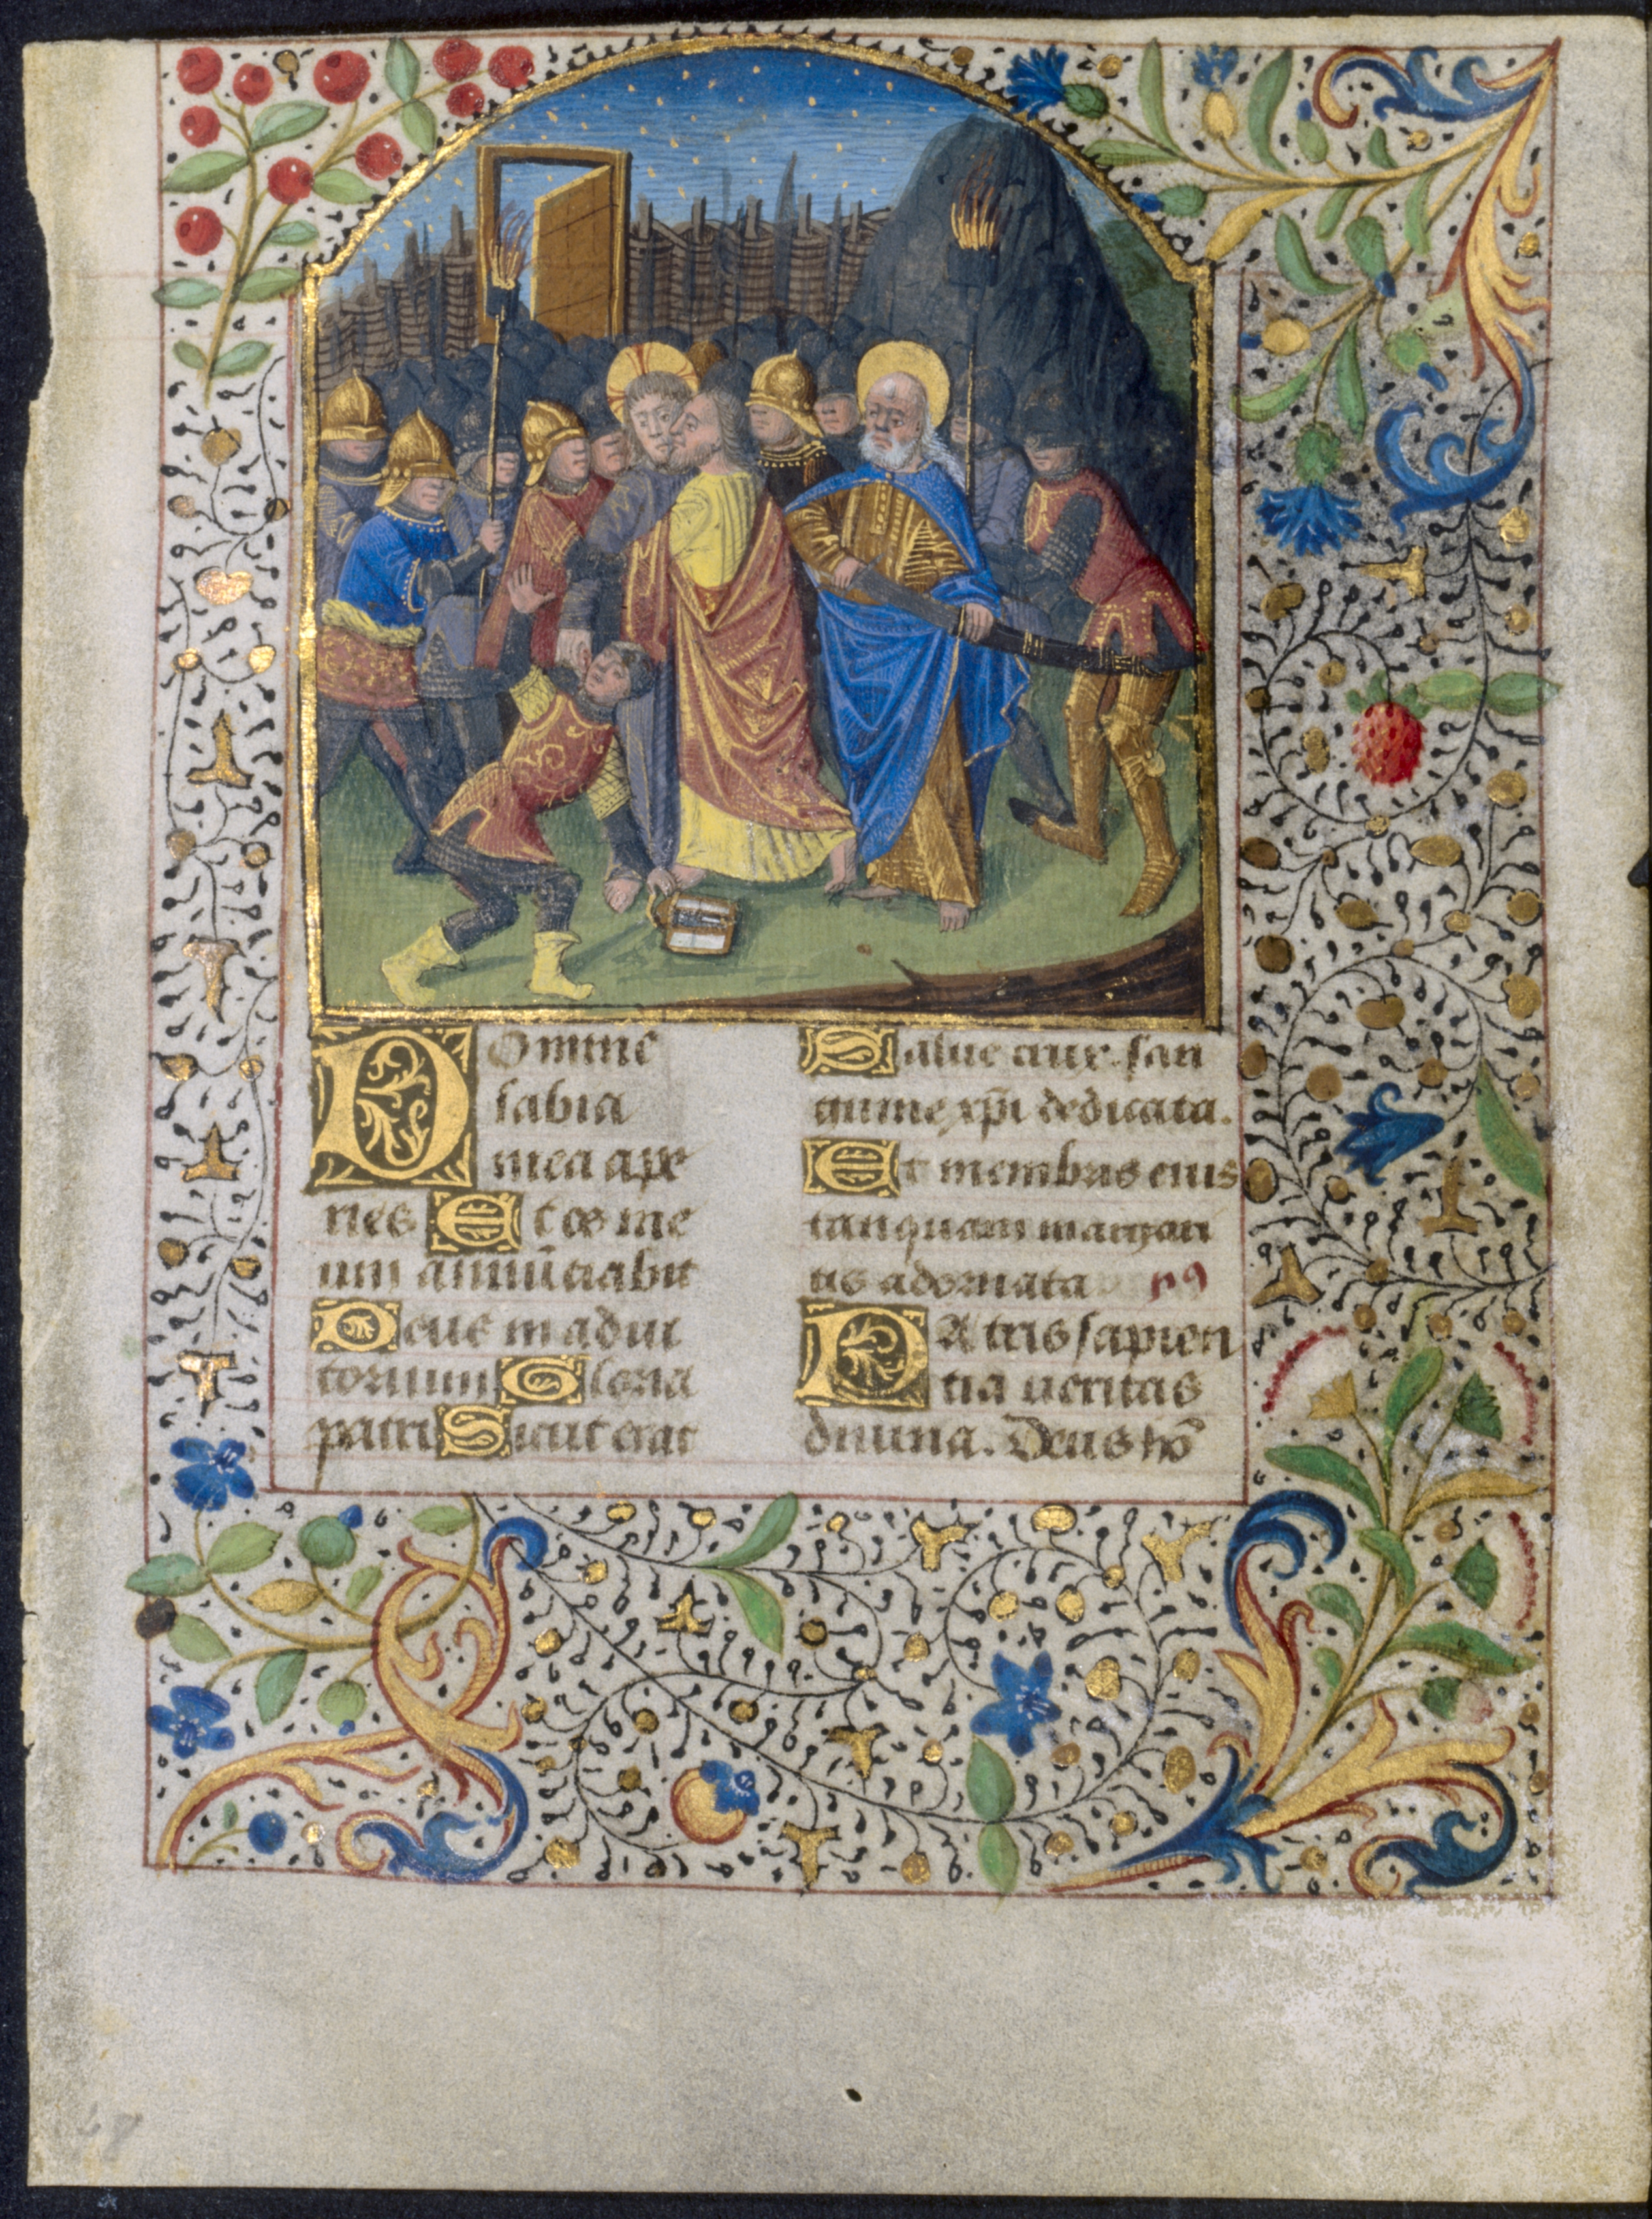 Domine
labia
mea ape
ries Et os me
um annũciabit
Deus in adiu
torium Gloria
patri Sicut erat
Salue crux san
guine xp̃i dedicata.
Et membris eius
tanquam margari
tis adornata ps
Patris sapien
tia ueritas
diuina. Deus hõ